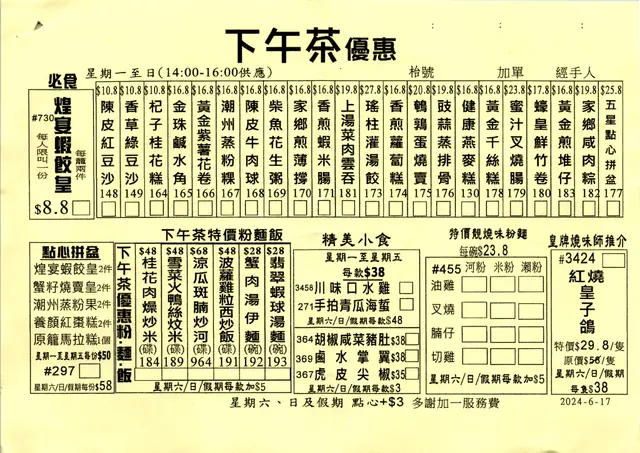 下午茶優惠
星期一至日(14:00-16:00供應)
枱號 加單 經手人
必食
煌宴蝦餃皇
#730
每人限叫一份
每籠兩件
$8.8
$10.8 陳皮紅豆沙 148
$10.8 香草綠豆沙 149
$10.8 杞子桂花糕 164
$16.8 金珠鹹水角 165
$16.8 黃金紫薯花卷 166
$16.8 潮州蒸粉粿 167
$16.8 陳皮牛肉球 168
$16.8 柴魚花生粥 169
$16.8 家鄉煎薄撐 170
$16.8 香煎蝦米腸 171
$16.8 上湯菜肉雲吞 181
$27.8 瑤柱灌湯餃 173
$16.8 香煎蘿蔔糕 174
$20.8 鵪鶉蛋燒賣 175
$16.8 豉蒜蒸排骨 176
$16.8 健康燕麥糕 130
$16.8 黃金千絲糕 178
$23.8 蜜汁叉燒腸 179
$17.8 蠔皇鮮竹卷 180
$16.8 黃金煎堆仔 183
$19.8 家鄉咸肉粽 182
$25.8 五星點心拼盆 177
點心拼盆
煌宴蝦餃皇2件
蟹籽燒賣皇2件
潮州蒸粉果2件
養顏紅棗糕2件
原籠馬拉糕1個
星期一至星期五每份$50
#297
星期六/日/假期每份$58
下午茶特價粉麵飯
下午茶優惠粉·麵·飯
$48 桂花肉燥炒米(碟) 184
$48 雪菜火鴨絲炆米(碟) 189
$68 涼瓜斑腩炒河(碟) 964
$48 波蘿雞粒西炒飯(碟) 191
$28 蟹肉湯伊麵(碗) 192
$28 翡翠蝦球湯麵(碗) 193
星期六/日/假期每款加$5
精美小食
星期一至星期五
每款$38
3458 川味口水雞
271 手拍青瓜海蜇
星期六/日/假期每款$48
364 胡椒咸菜豬肚$38
369 鹵水掌翼$38
367 虎皮尖椒$35
星期六/日/假期每款$3
特價靚燒味粉麵
每碗$23.8
#455 河粉 米粉 瀨粉
油雞
叉燒
腩仔
切雞
星期六/日/假期每款加$5
皇牌燒味師推介
#3424
紅燒皇子鴿
特價$29.8/隻
原價$56/隻
星期六/日/假期
每隻$38
2024-6-17
星期六、日及假期 點心+$3 多謝加一服務費